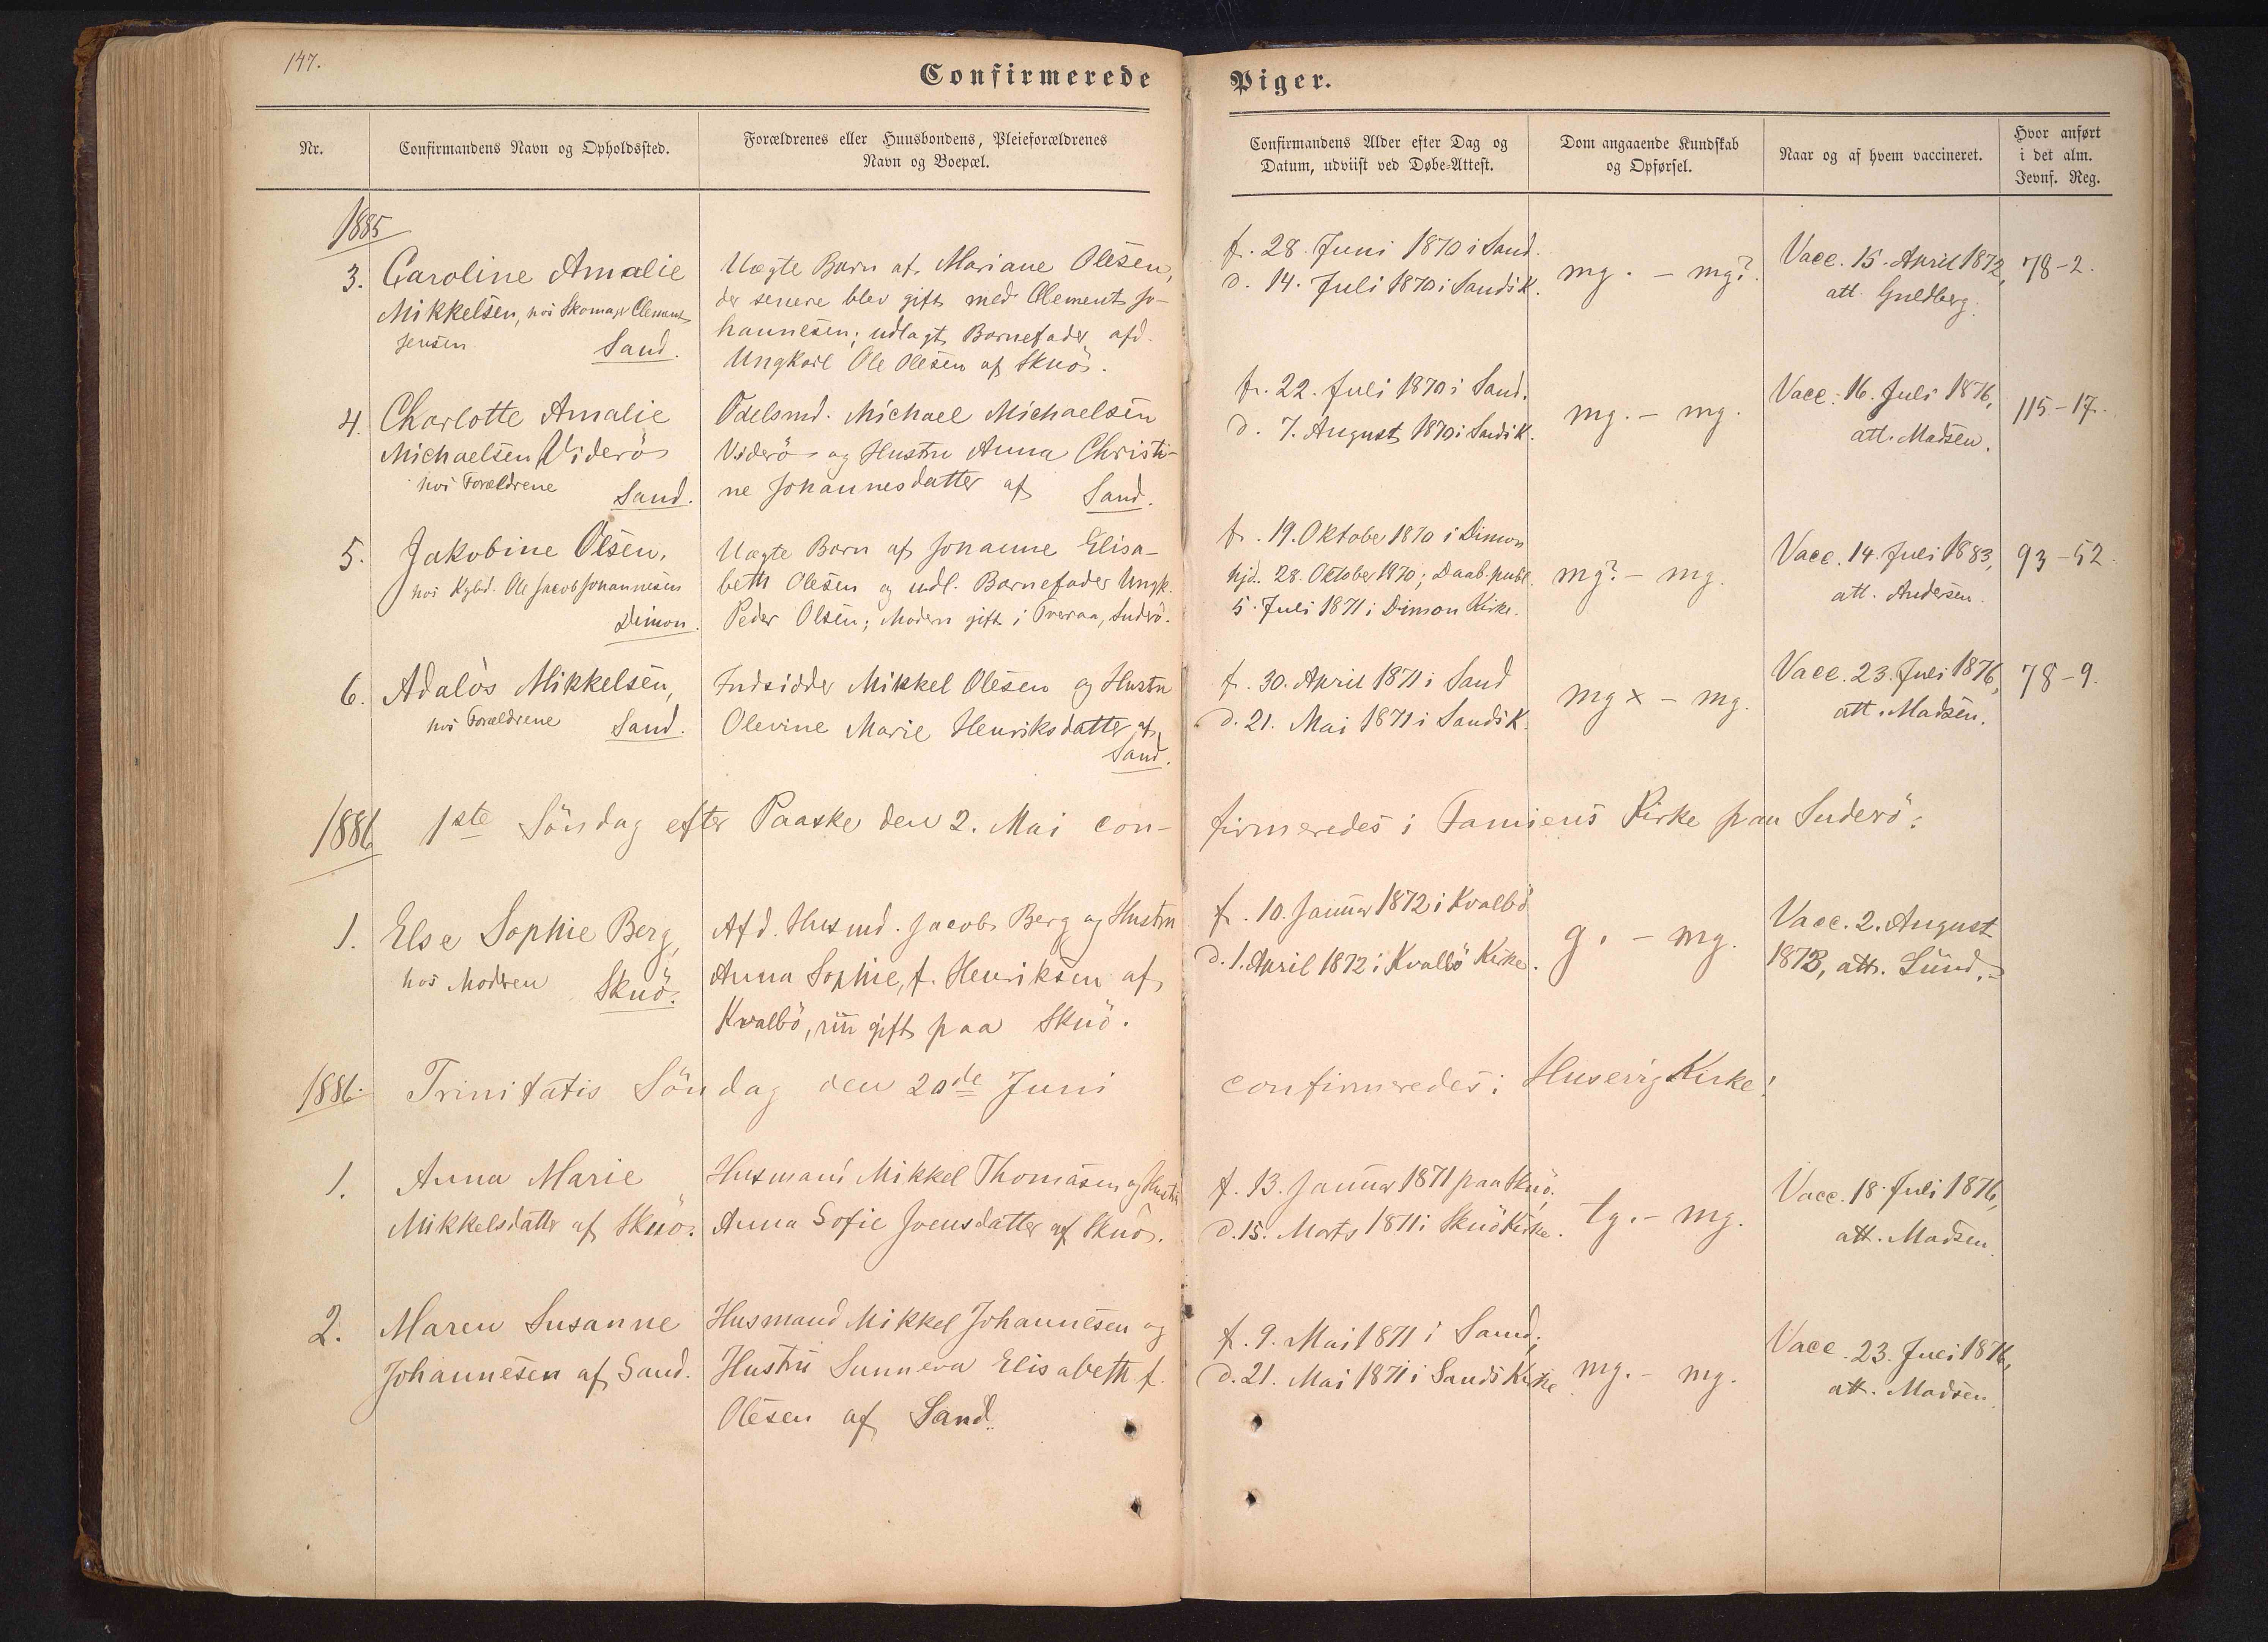 147.
Confirmerede Piger.
Nr.
Confirmandens Navn og Opholdssted.
Forældrenes eller Huusbondens, Pleieforældrenes
Navn og Boepæl.
Confirmandens Alder efter Dag og
Datum, udviist ved Døbe-Attest.
Dom angaaende Kundskab
og Opførsel.
Naar og af hvem vaccineret.
Hvor anført
i det alm.
Jevnf. Reg.
1885
3.
Caroline Amalie
Mikkelsen, hos Skomager Clement
Jensen
Sand.
Uægte Barn af Mariane Olesen,
der senere blev gift med Clement Jo-
hannesen; udlagt Barnefader afd.
Ungkarl Ole Olesen af Skuö.
f. 28. Juni 1870 i Sand.
d. 14. Juli 1870 i Sands K.
mg. - mg?
Vacc. 15. April 1872,
att. Guldberg.
78-2.
4.
Charlotte Amalie
Michaelsen Viderö
hos Forældrene
Sand.
Odelsmd. Michael Michaelsen
Viderö og Hustru Anna Christi-
ne Johannesdatter af
Sand.
f. 22. Juli 1870 i Sand.
d. 7. August 1870 i Sands K.
mg. - mg.
Vacc. 16. Juli 1876,
att. Madsen.
115-17.
5.
Jakobine Olsen,
hos Kgbd. Ole Jacob Johannesen
Dimon.
Uægte Barn af Johanne Elisa-
beth Olesen og udl. Barnefader Ungk.
Peder Olsen; Modern gift i Tveraa, Suderö.
f. 19. Oktober 1870 i Dimon
hjd. 28. Oktober 1870; Daab. publ.
5. Juli 1871 i Dimon Kirke.
mg? - mg.
Vacc. 14. Juli 1883,
att. Andersen.
93-52.
6.
Adalòs Mikkelsen,
hos Forældrene
Sand.
Indsidder Mikkel Olesen og Hustru
Olevine Marie Henriksdatter af
Sand.
f. 30. April 1871 i Sand
d. 21. Mai 1871 i Sands K.
mg x - mg.
Vacc. 23. Juli 1876,
att. Madsen.
78-9.
1886 1ste Söndag efter Paaske den 2. Mai con-firmeredes i Famiens Kirke paa Suderö:
1.
Else Sophie Berg,
hos Modren
Skuö.
Afd. Husmd. Jacob Berg og Hustru
Anna Sophie, f. Henriksen af
Kvalbö, nu gift paa Skuö.
f. 10. Januar 1872 i Kvalbö
d. 1. April 1872 i Kvalbö Kirke.
g. - mg.
Vacc. 2. August
1873, att. Lund.
1886. Trinitatis Söndag den 20de Juni confirmeredes i Husevig Kirke:
1.
Anna Marie
Mikkelsdatter af Skuö.
Husmand Mikkel Thomasen og Hustru
Anna Sofie Joensdatter af Skuö.
f. 13. Januar 1871 paa Skuö.
d. 15. Marts 1871 i Skuö Kirke.
tg. - mg.
Vacc. 18. Juli 1876,
att. Madsen.
2.
Maren Susanne
Johannesen af Sand.
Husmand Mikkel Johannesen og
Hustru Sunneva Elisabeth f.
Olesen af Sand.
f. 9. Mai 1871 i Sand,
d. 21. Mai 1871 i Sands Kirke.
mg. - mg.
Vacc. 23. Juli 1876,
att. Madsen.